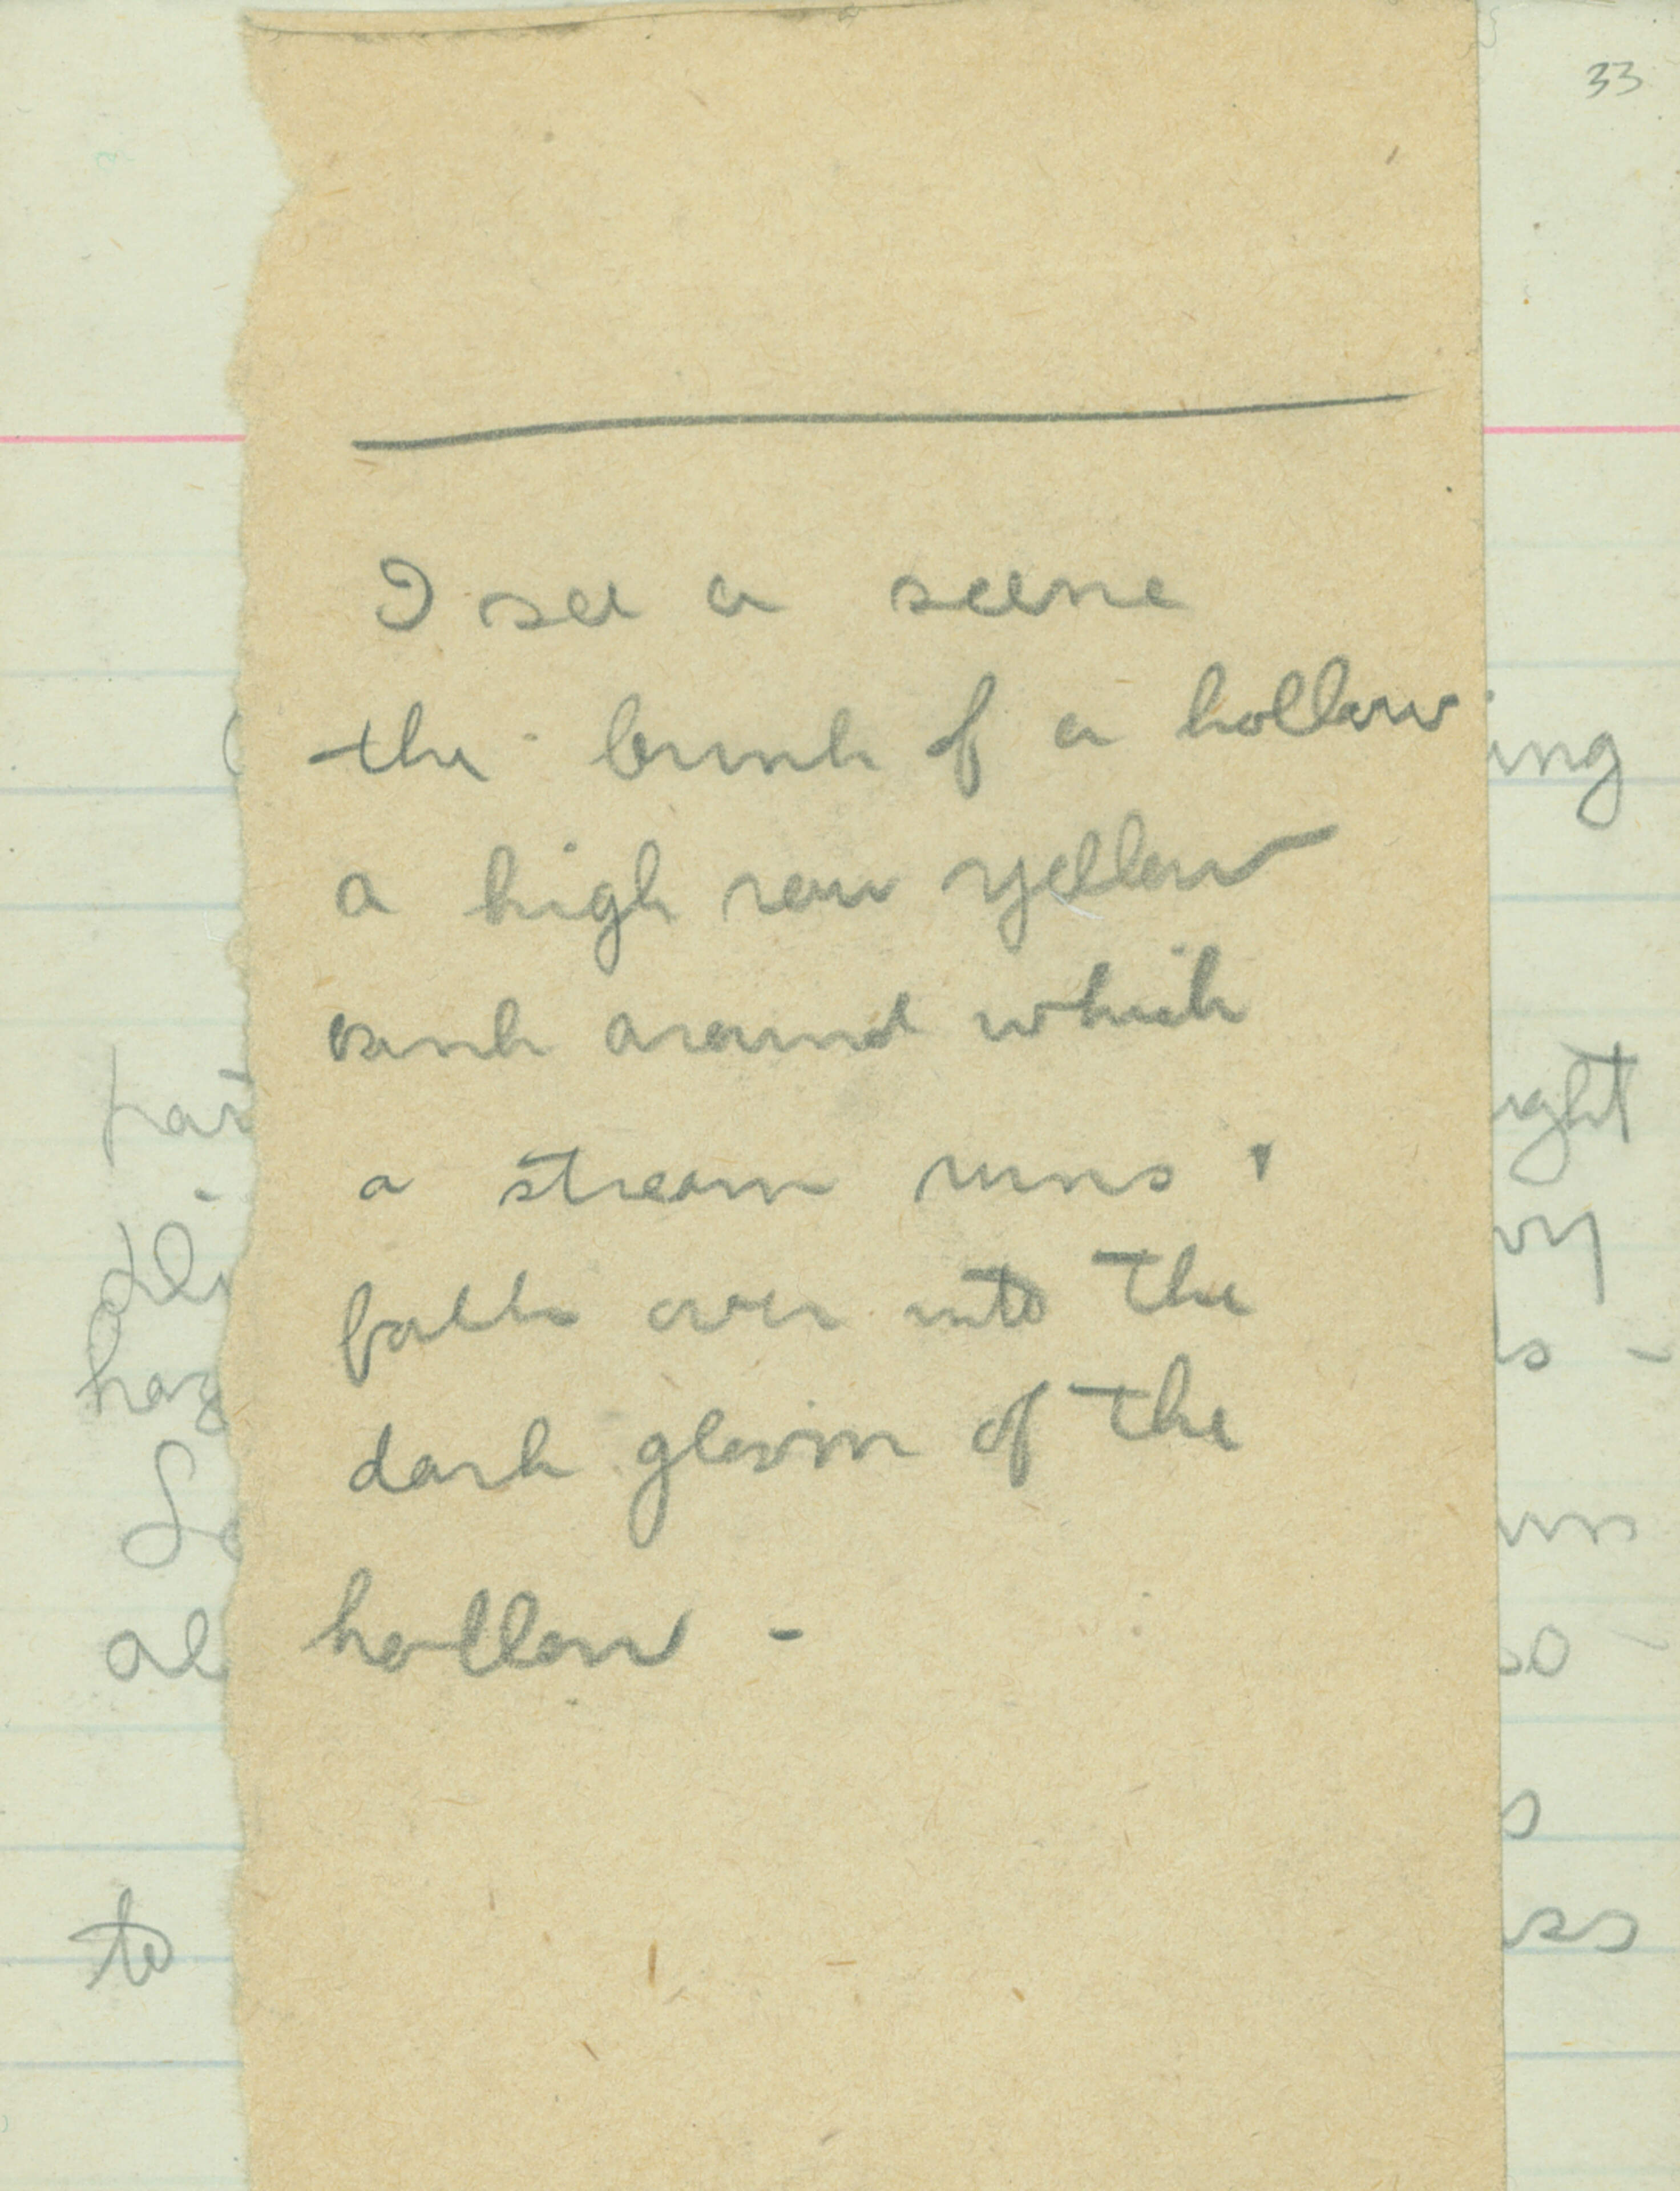 33
I see a scene
the brink of a hollow
a high raw yellow
bank around which
a stream runs &
falls over into the
dark gloom of the
hollow -
ing
ight
to